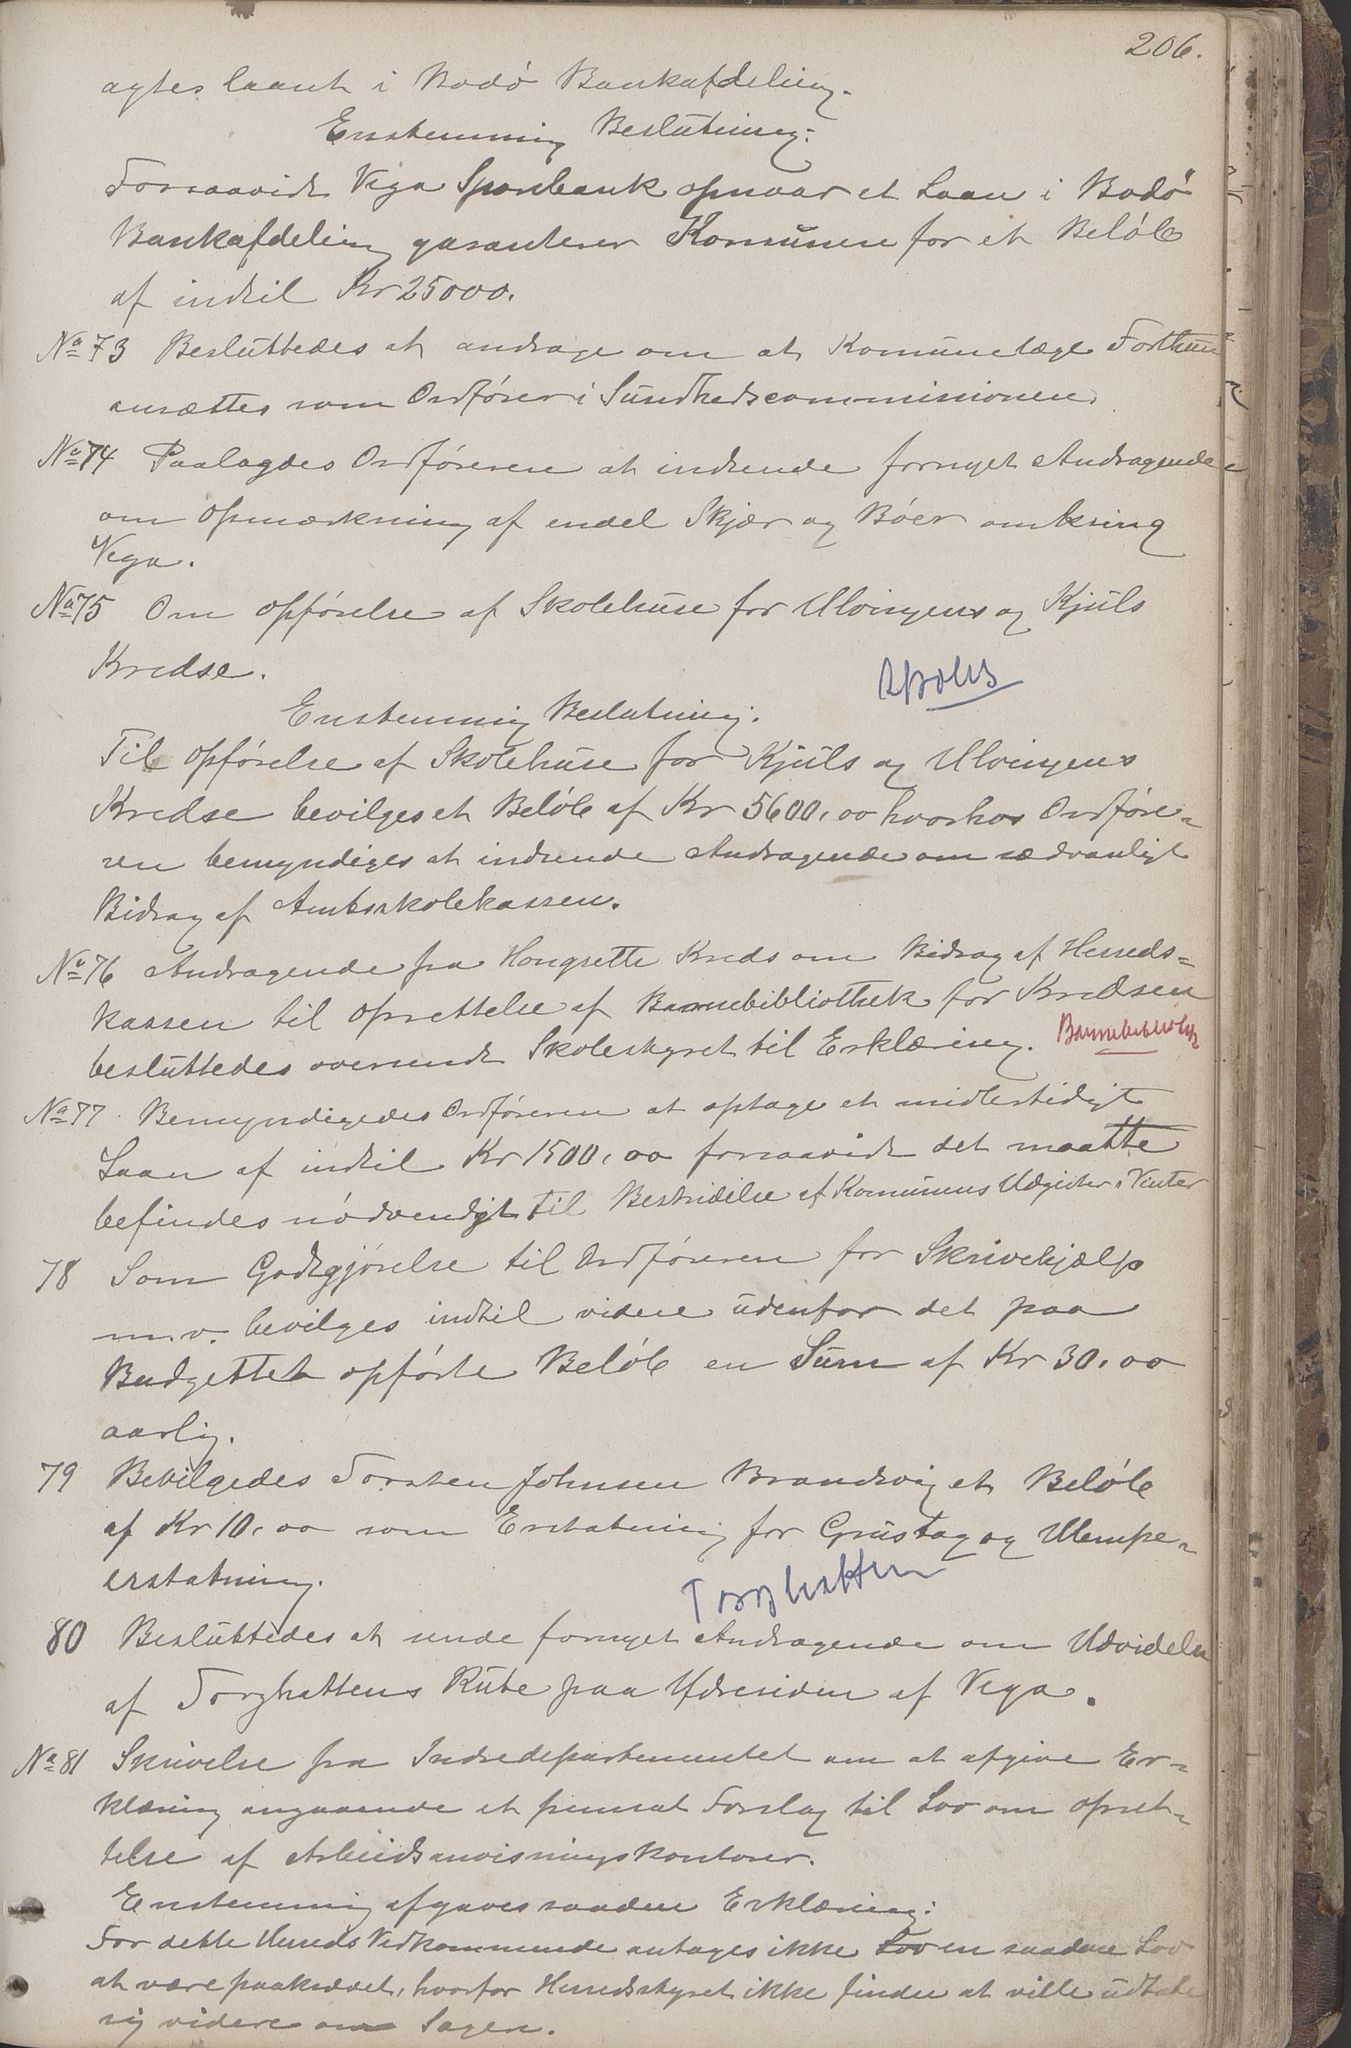 206.
agtes laant i Bodø Bankafdeling.
Enstemmig Beslutning:
Forsaavidt Vega Sparebank opnaar et Laan i Bodø
Bankafdeling garanterer Komunen for et Beløb
af indtil Kr 25000.
No 73 Besluttedes at andrage om at Komunelæge
ansættes som Ordfører i Sundhedscommissionen.
No 74 Paalagdes Ordføreren at indsende fornyet Andragende
om Opmærkning af endel Skjær og Bøer omkring
Vega.
No 75 Om Opførelse af Skolehuse for Ulvingens og Kjuls
Kredse.
Enstemmig Beslutning.
Til Opførelse af Skolehuse for Kjuls og Ulvingens
Kredse bevilges et Beløb af Kr 5600,00 hvorhos Ordføre-
ren bemyndiges at indsende Andragende om sædvanligt
Bidrag af Amtsskolekassen.
No 76 Andragende fra Hongsette Kreds om Bidrag af Herreds-
kassen til Oprettelse af Barnebibliothek for Kredsen
besluttedes oversendt Skolestyret til Erklæring. Barnebibliothek
No 77. Bemyndigedes Ordføreren at optage et midlertidigt
Laan af indtil Kr 1500,00 forsaavidt det maatte
befindes nødvendigt til Bestridelse af Komunens Udgifter i Vinter
78 Som Godtgjørelse til Ordføreren for Skrivehjælp
m.v. bevilges indtil videre udenfor det paa
Budgettet opførte Beløb en Sum af Kr 30,00
aarlig.
79 Bevilgedes Torsten Johnsen Brandsvig et Beløb
af Kr 10,00 som Erstatning for Grustag og Ulempe-
erstatning.
Torghatten
80 Besluttedes at sende fornyet Andragende om Udvidelse
af Torghattens Rute paa Ydresiden af Vega.
No 81 Skrivelse fra Indredepartementet om at afgive Er-
klæring angaaende et fremsat Forslag til Lov om opret-
telse af Arbeidsanvisningskontorer.
Enstemmig afgaves saadan Erklæring:
For dette Herreds Vedkommende antages ikke Lov en saadan Lov
at være paakrævet, hvorfor Herredsstyret ikke finder at ville udtale
sig videre om Sagen.